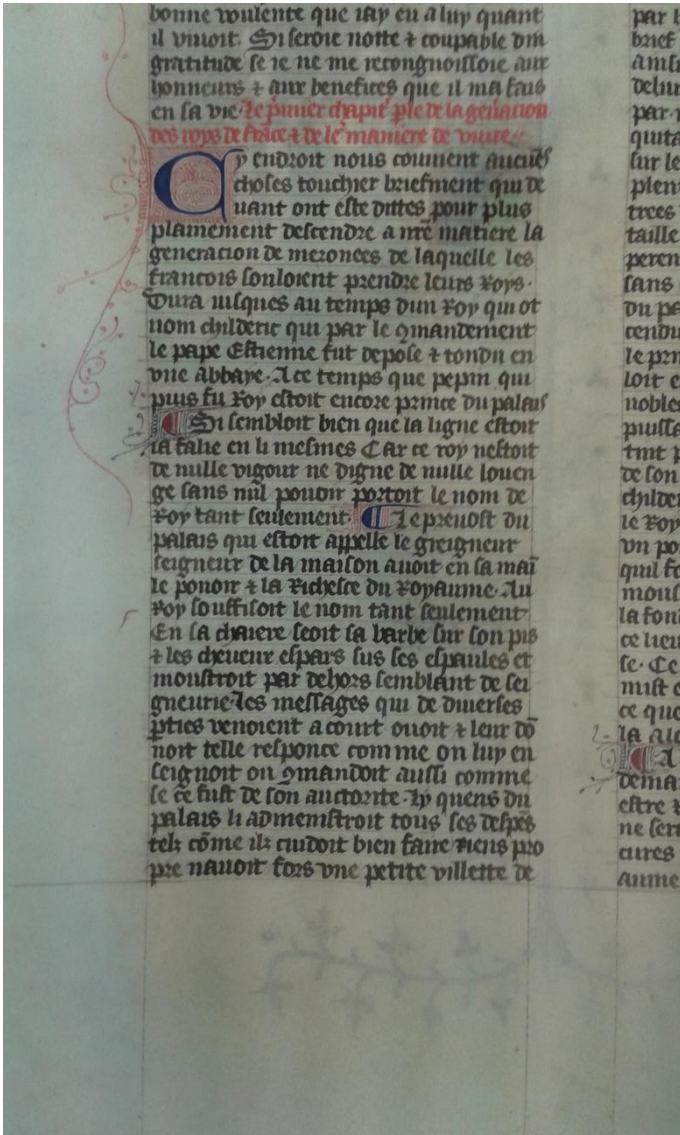 bonne voulente que iay eu a luy quant
il viuoit. Si seroie notte ⁊ coupable din
gratitude se ie ne me recongnoissoie aux
honneurs ⁊ aux benefices que il ma fais
en sa vie. Le p̄mier chapit̄ p̄le de la gen̄acion
des roys de frāce ⁊ de le maniere de viure.
Cy endroit nous couuient aucūes
choses touchier briefment qui de
uant ont este dittes pour plus
plainement descendre a nr̄e matiere la
generacion de meronees de laquelle les
francois souloient prendre leurs Roys.
Dura iusques au temps dun Roy qui ot
nom childeric qui par le ꝯmandement
le pape Estienne fut depose ⁊ tondu en
vne abbaye. A ce temps que pepin qui
puis fu Roy estoit encore prince du palais
Si sembloit bien que la ligne estoit
ia falie en li mesmes Car ce roy nestoit
de nulle vigour ne digne de nulle louen
ge sans nul pouoir portoit le nom de
Roy tant seulement. Le preuost du
palais qui estoit appelle le greigneur
seigneur de la maison auoit en sa mai
le pouoir ⁊ la Richesce du Royaume. Au
Roy souffisoit le nom tant seulement
En sa chaiere seoit sa barbe sur son pis
⁊ les cheueux espars sus ses espaules et
moustroit par dehors semblant de sei
gneurie. les messages qui de diuerses
ꝑties venoient a court ouoit ⁊ leur dō
noit telle responce comme on luy en
seignoit ou ꝯmandoit aussi comme
se ce fust de son auctorite. Ly quens du
palais li admenistroit tous ses despēs
telz cōme ilz cuidoit bien faire Riens pro
pre nauoit fors vne petite villette de
par
brief
par
sur le
trees
taille
sans
du
le
loit
noble
de son
childe
le Roy
vn
la
ce lieu
se. Ce
mist
ce que
la
estre ⁊
ne
cures
aume